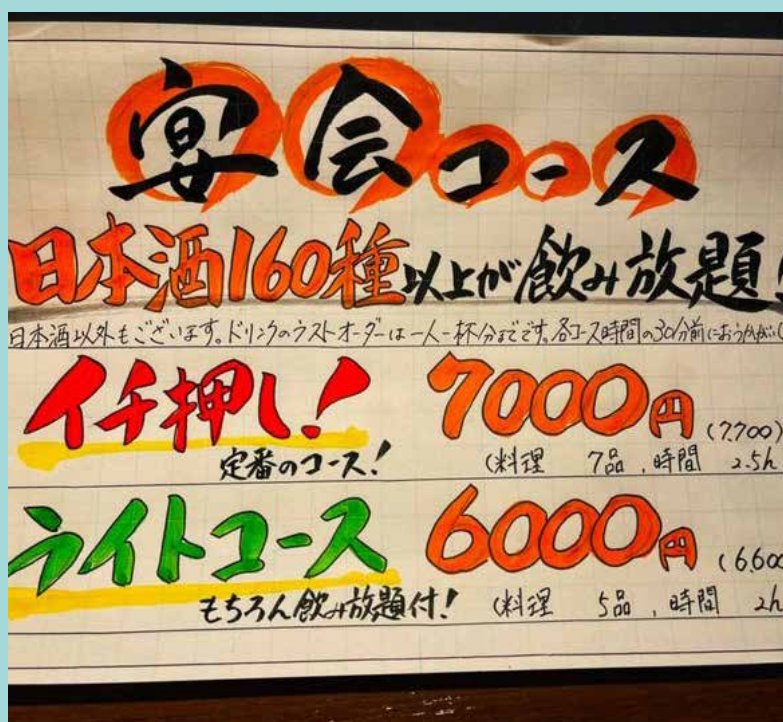 宴会コース
日本酒160種以上が飲み放題!
日本酒以外もございます。ドリンクのラストオーダーは一人一杯分までです。各コース時間の30分前におうかがい
イチ押し! 7000円 (7.700)
定番のコース! (料理 7品, 時間 2.5h
ライトコース 6000円 (6.600
もちろん飲み放題付! (料理 5品, 時間 2h